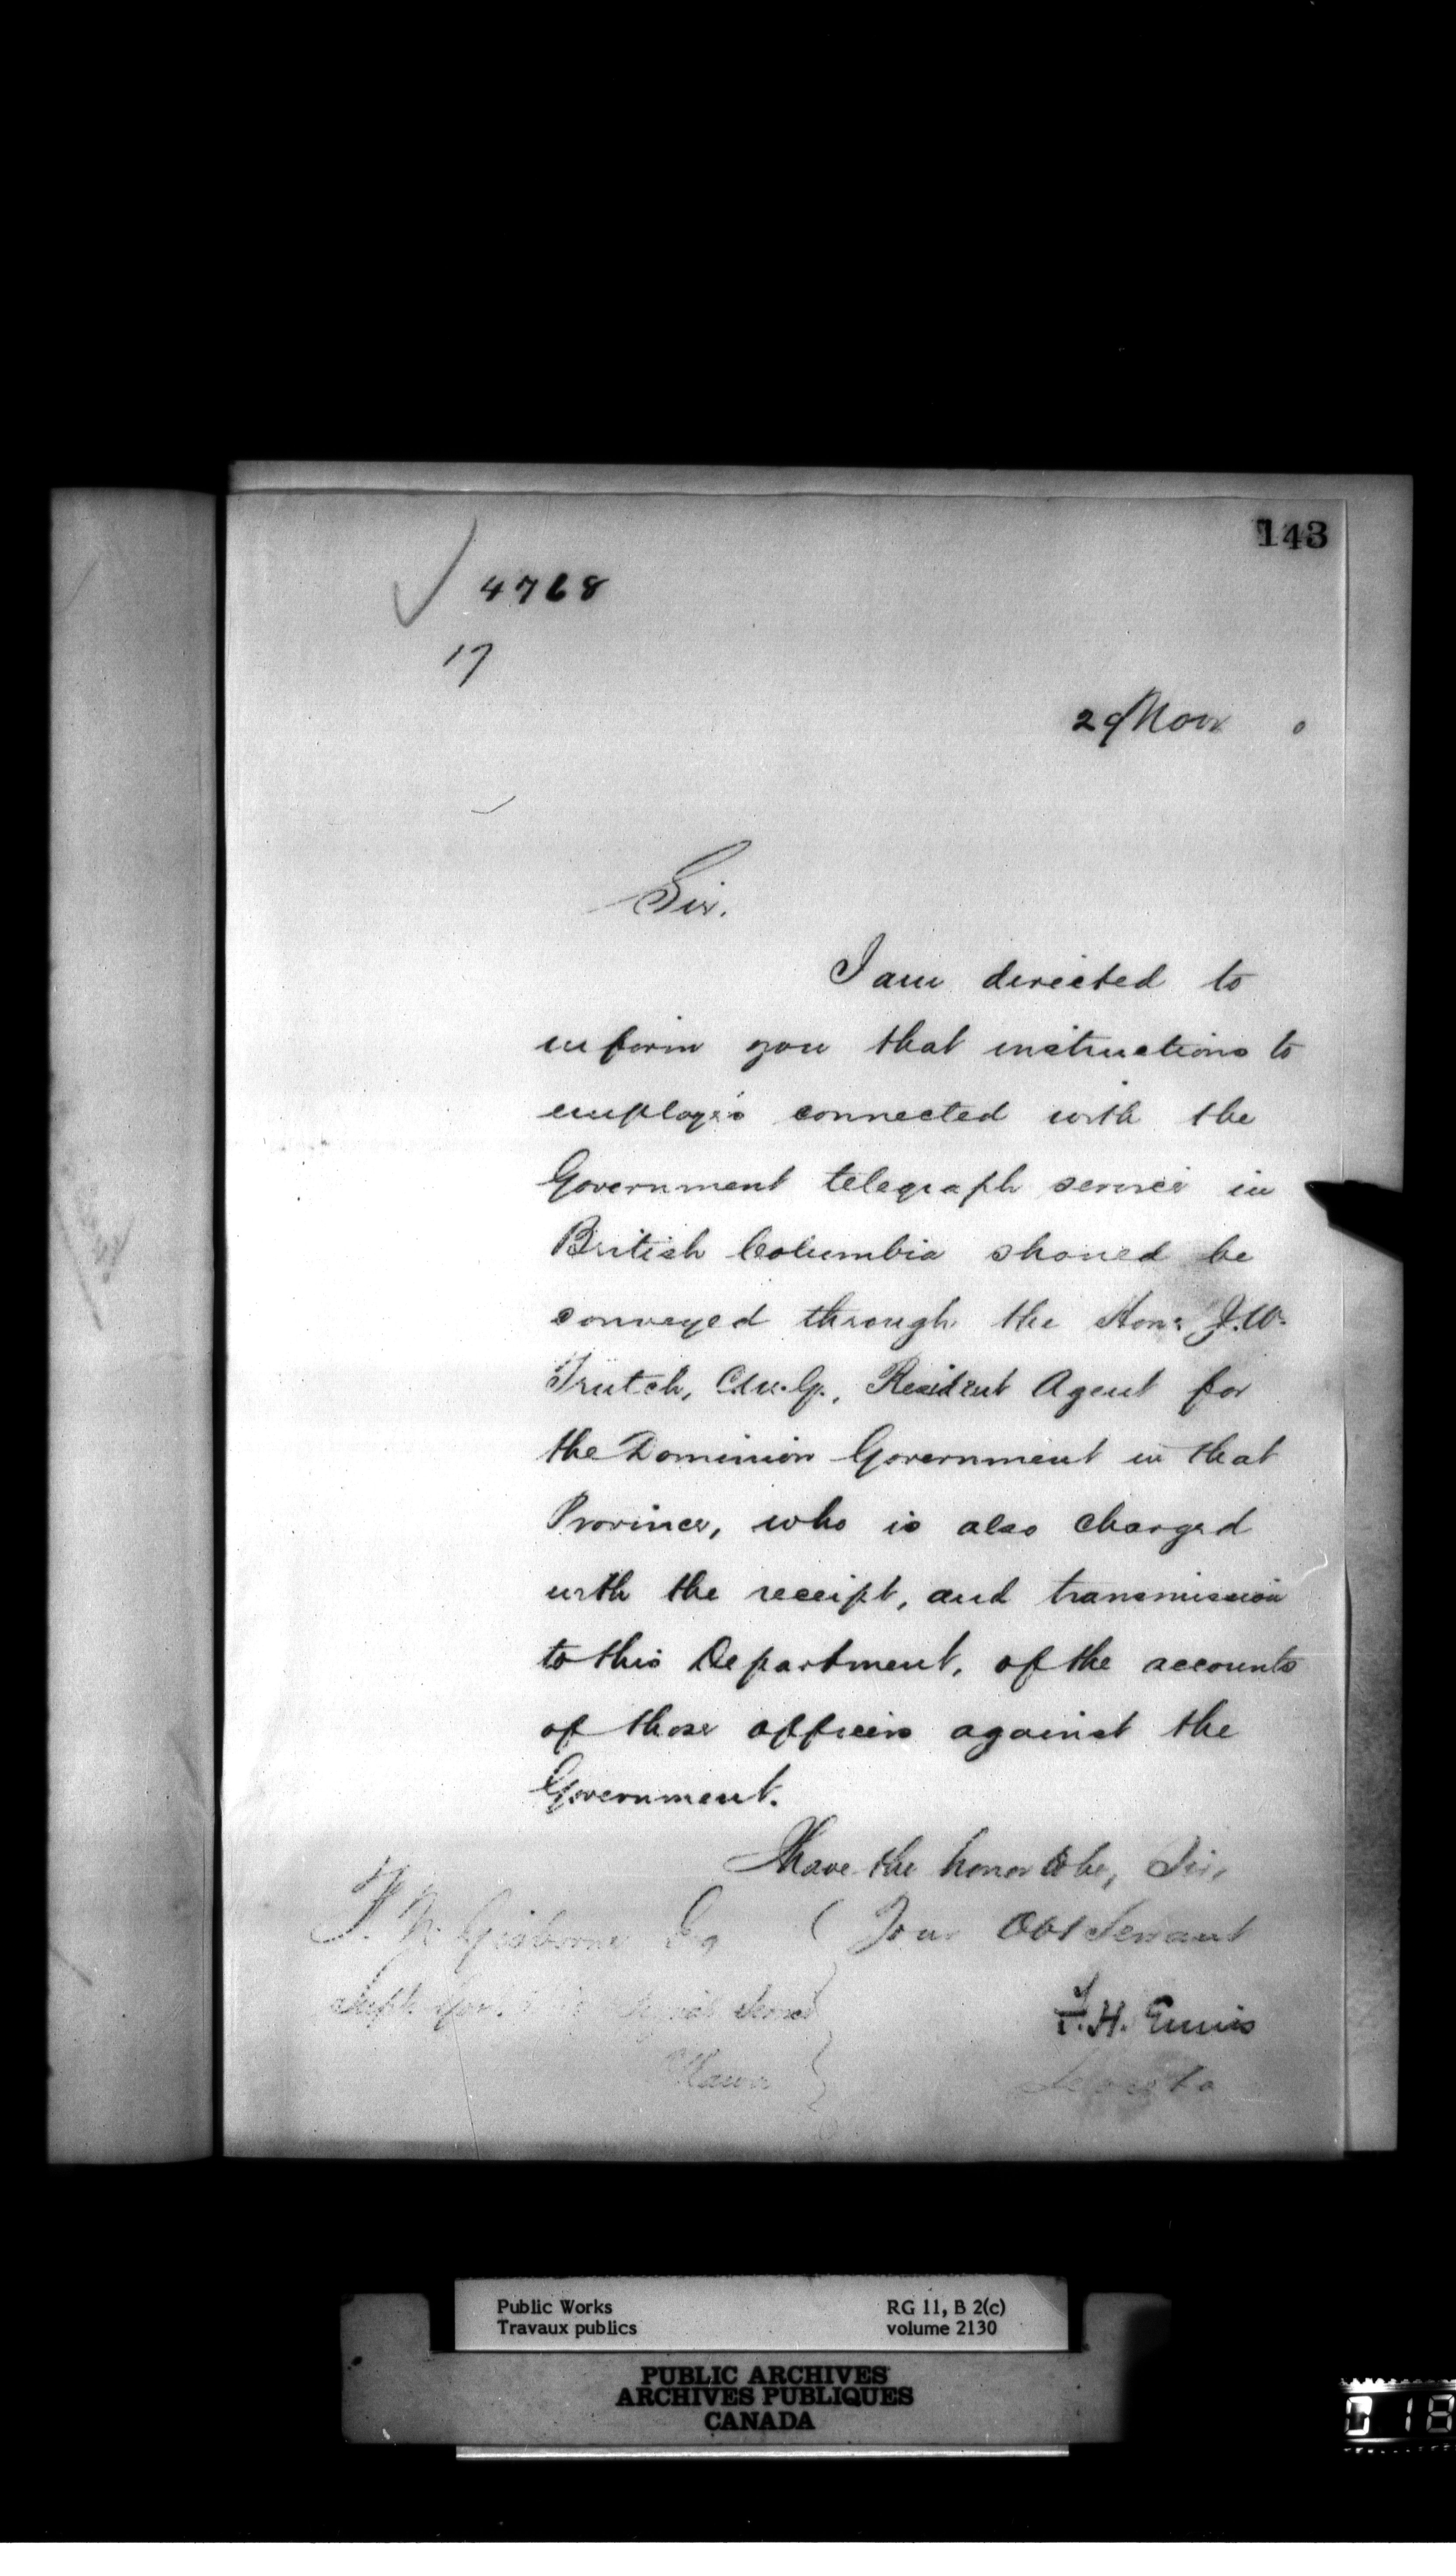 143
4768
17
29 Nov 0
Sir.
I am directed to
inform you that instructions to
employés connected with the
Government telegraph service in
British Columbia should be
conveyed through the Hon. J.W.
Trutch, C.M.G., Resident Agent for
the Dominion Government in that
Province, who is also charged
with the receipt, and transmission
to this Department, of the accounts
of those officers against the
Government.
I have the honor to be, Sir,
F. N. Gisborne Esq
Your Obt Servant
Supt Gov. Service
F. H. Ennis
Ottawa
Public Works
Travaux publics
RG 11, B 2(c)
volume 2130
PUBLIC ARCHIVES
ARCHIVES PUBLIQUES
CANADA
018